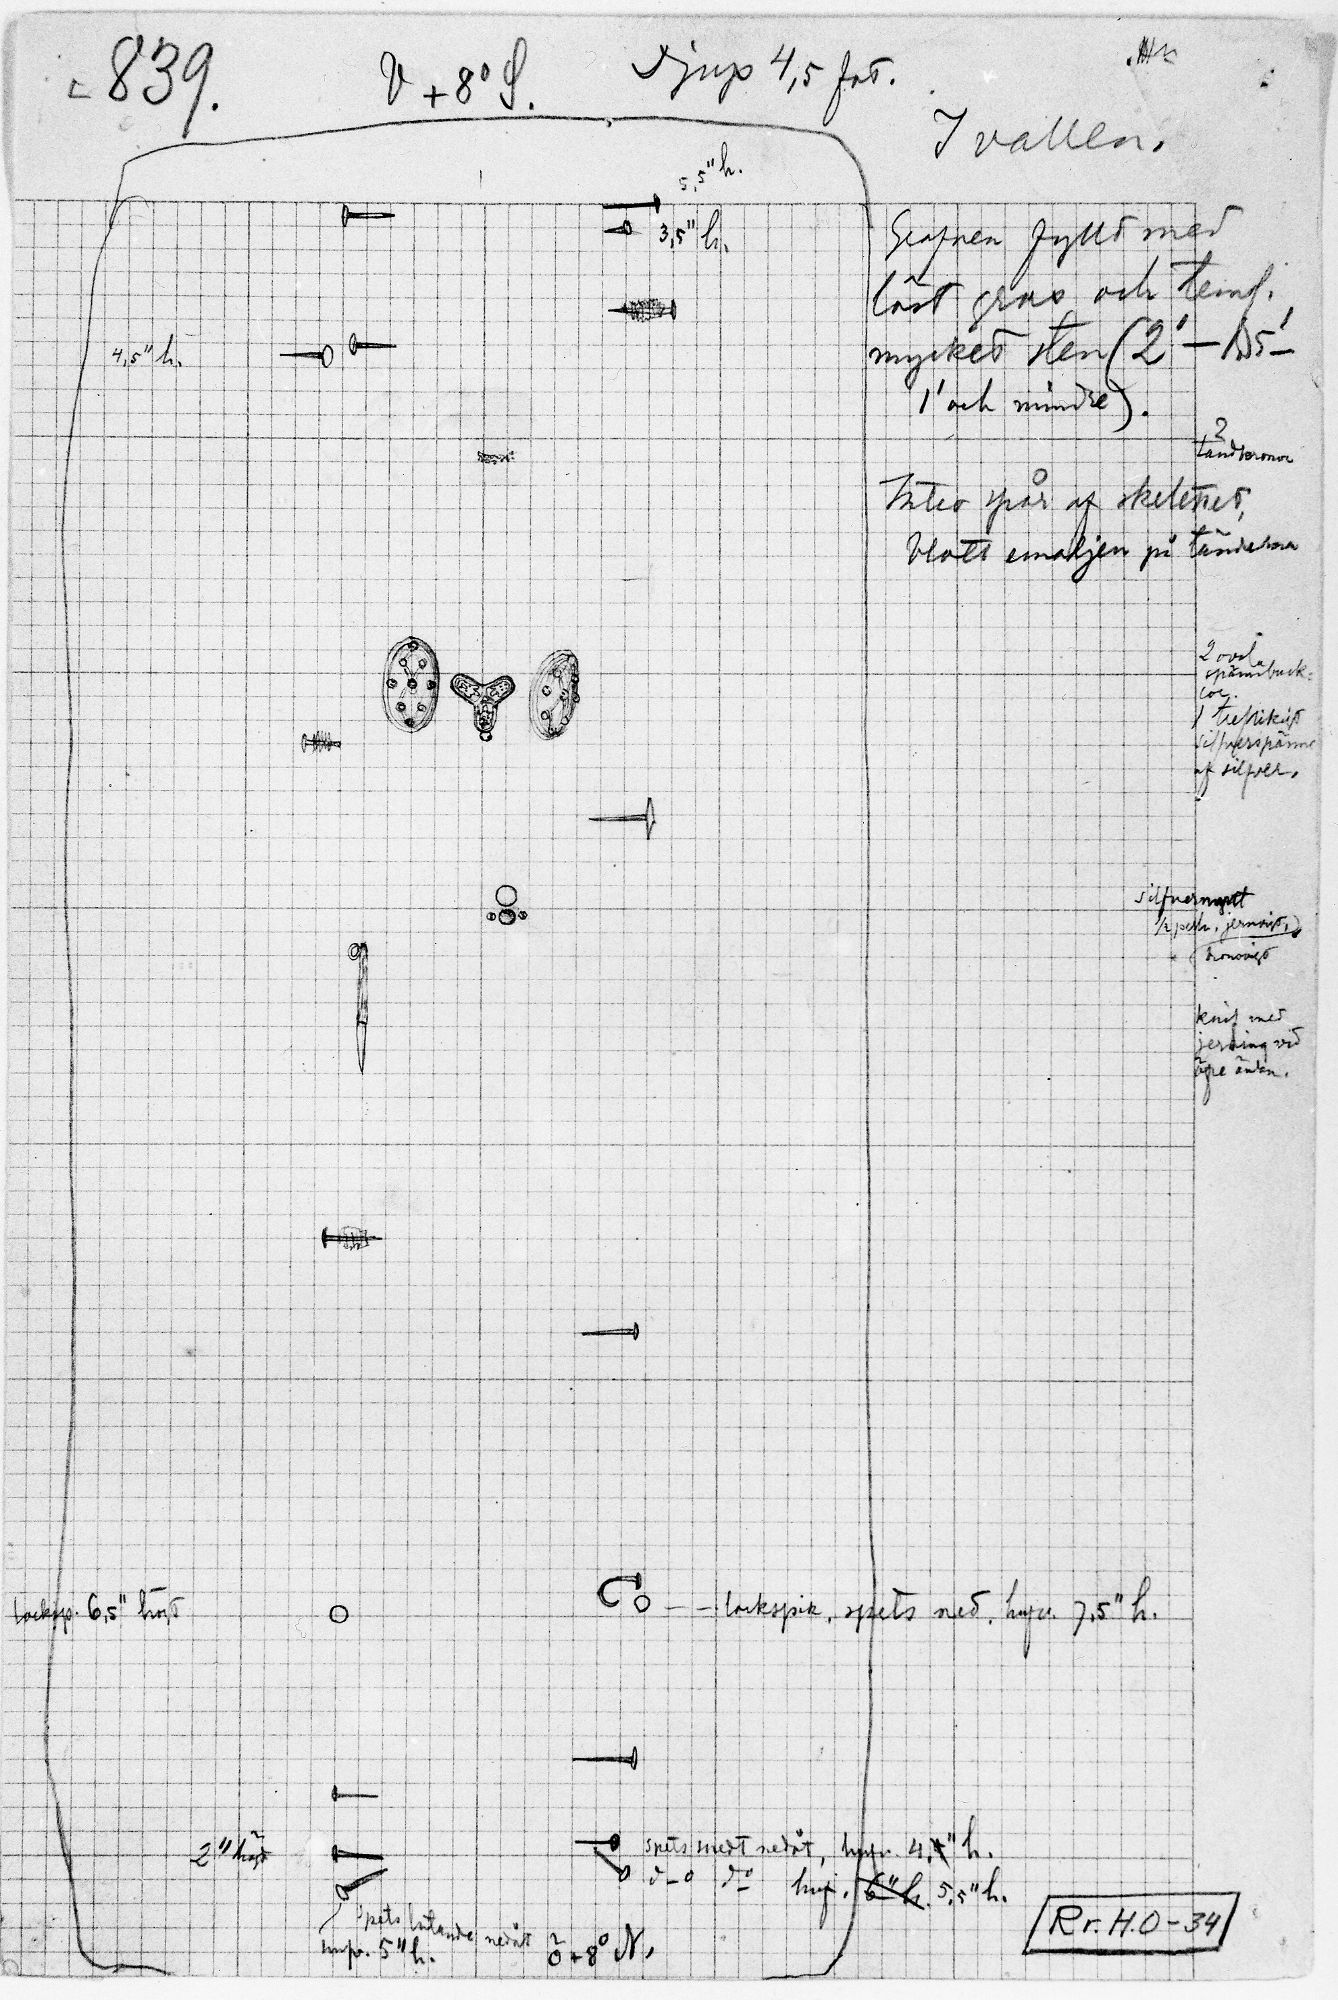 839.
V + 8° S.
Djup 4,5 fot.
I vallen.
5,5" h.
3,5" h.
Grafven fylld med
löst grus och teml.
mycket sten (2' — 1,5' –
1' och mindre).
4,5" h.
2
tandkronor
Intet spår af skelettet,
blott emaljen på tänderna
2 ovala
spännbuck=
lor.
1 treflikigt
silfverspänne
af silfver.
silfvermynt
1/2 perla, jernsigt,
bronssigt
knif med
jernring vid
öfre ändan.
locksp. 6,5" högt
— — lockspik, spets ned, hufv. 7,5" h.
2" högt
spets snedt nedåt, hufv. 4," h.
d–o d° huf. 6" h. 5,5" h.
spets lutande nedåt
hufv. 5" h.
Ö + 8° N.
Rr. H.O - 34